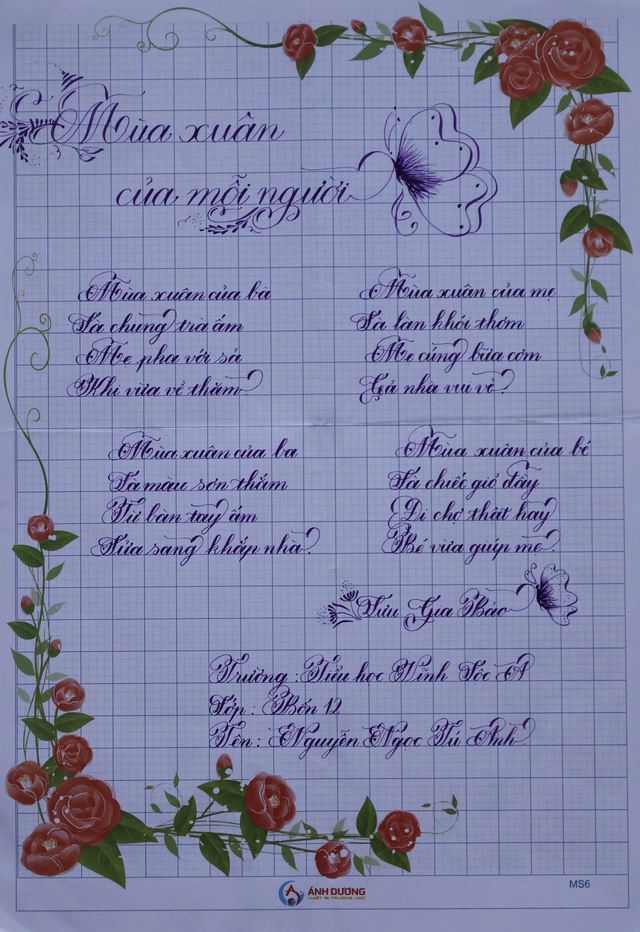 Mùa xuân
của mỗi người
Mùa xuân của bà
Là chung trà ấm
Mẹ pha với sả
Khi vừa về thăm.
Mùa xuân của mẹ
Là làn khói thơm
Mẹ cúng bữa cơm
Cả nhà vui vẻ.
Mùa xuân của ba
Là màu sơn thắm
Từ bàn tay ấm
Sửa sang khắp nhà.
Mùa xuân của bé
Là chiếc giỏ đầy
Đi chợ thật hay
Bé vừa giúp mẹ.
Lưu Gia Bảo
Trường : Tiểu học Vĩnh Lộc A
Lớp : Bốn 12
Tên : Nguyễn Ngọc Tú Anh
ÁNH DƯƠNG
THIẾT BỊ TRƯỜNG HỌC
MS6